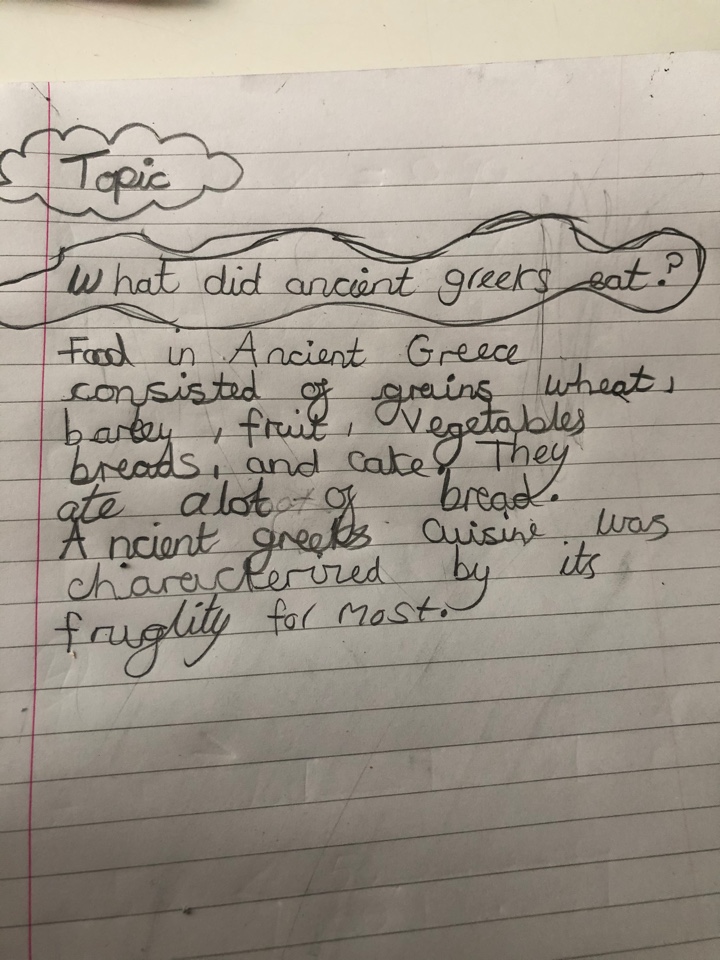 Topic
What did ancient greeks eat?
Food in Ancient Greece
consisted of grains wheat,
barley, fruit, Vegetables
breads, and cake. They
ate alot of bread.
Ancient greeks cuisine was
characterized by its
fruglity for most.